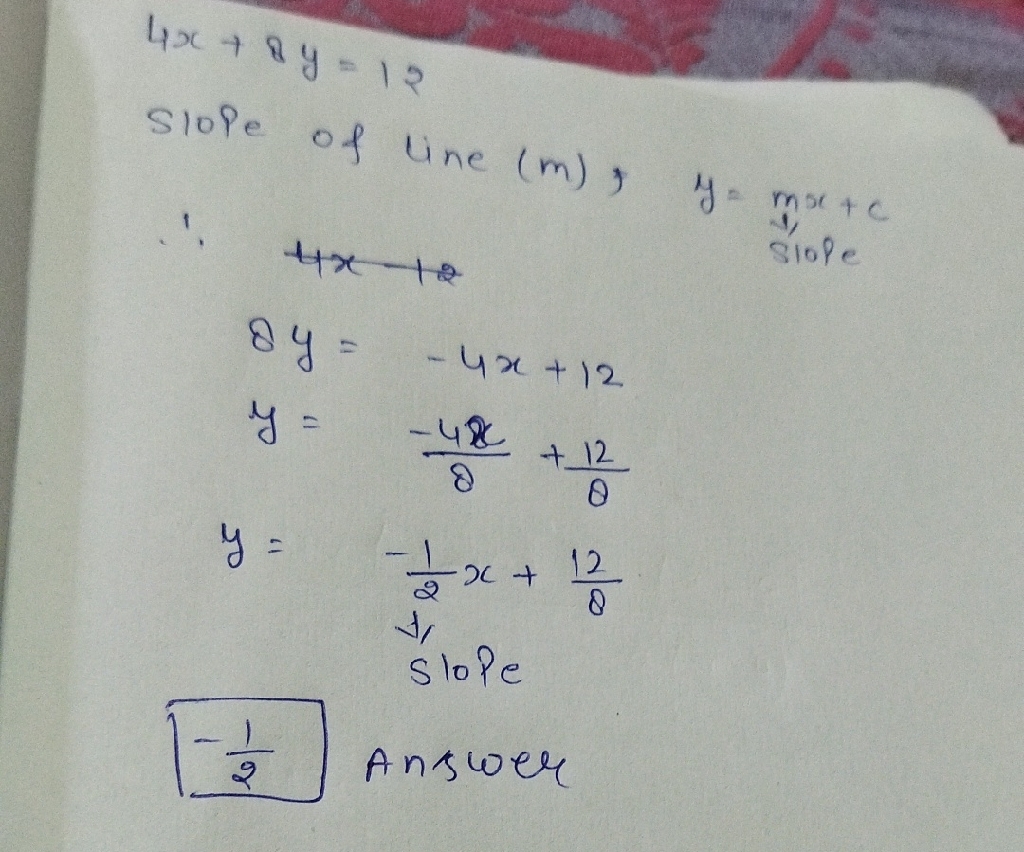 4x + 8y = 12
Slope of line (m), y = mx + c
↓
Slope
∴ 4x 12
8y = -4x + 12
y = -4x/8 + 12/8
y = -1/2 x + 12/8
↓
Slope
-1/2 Answer